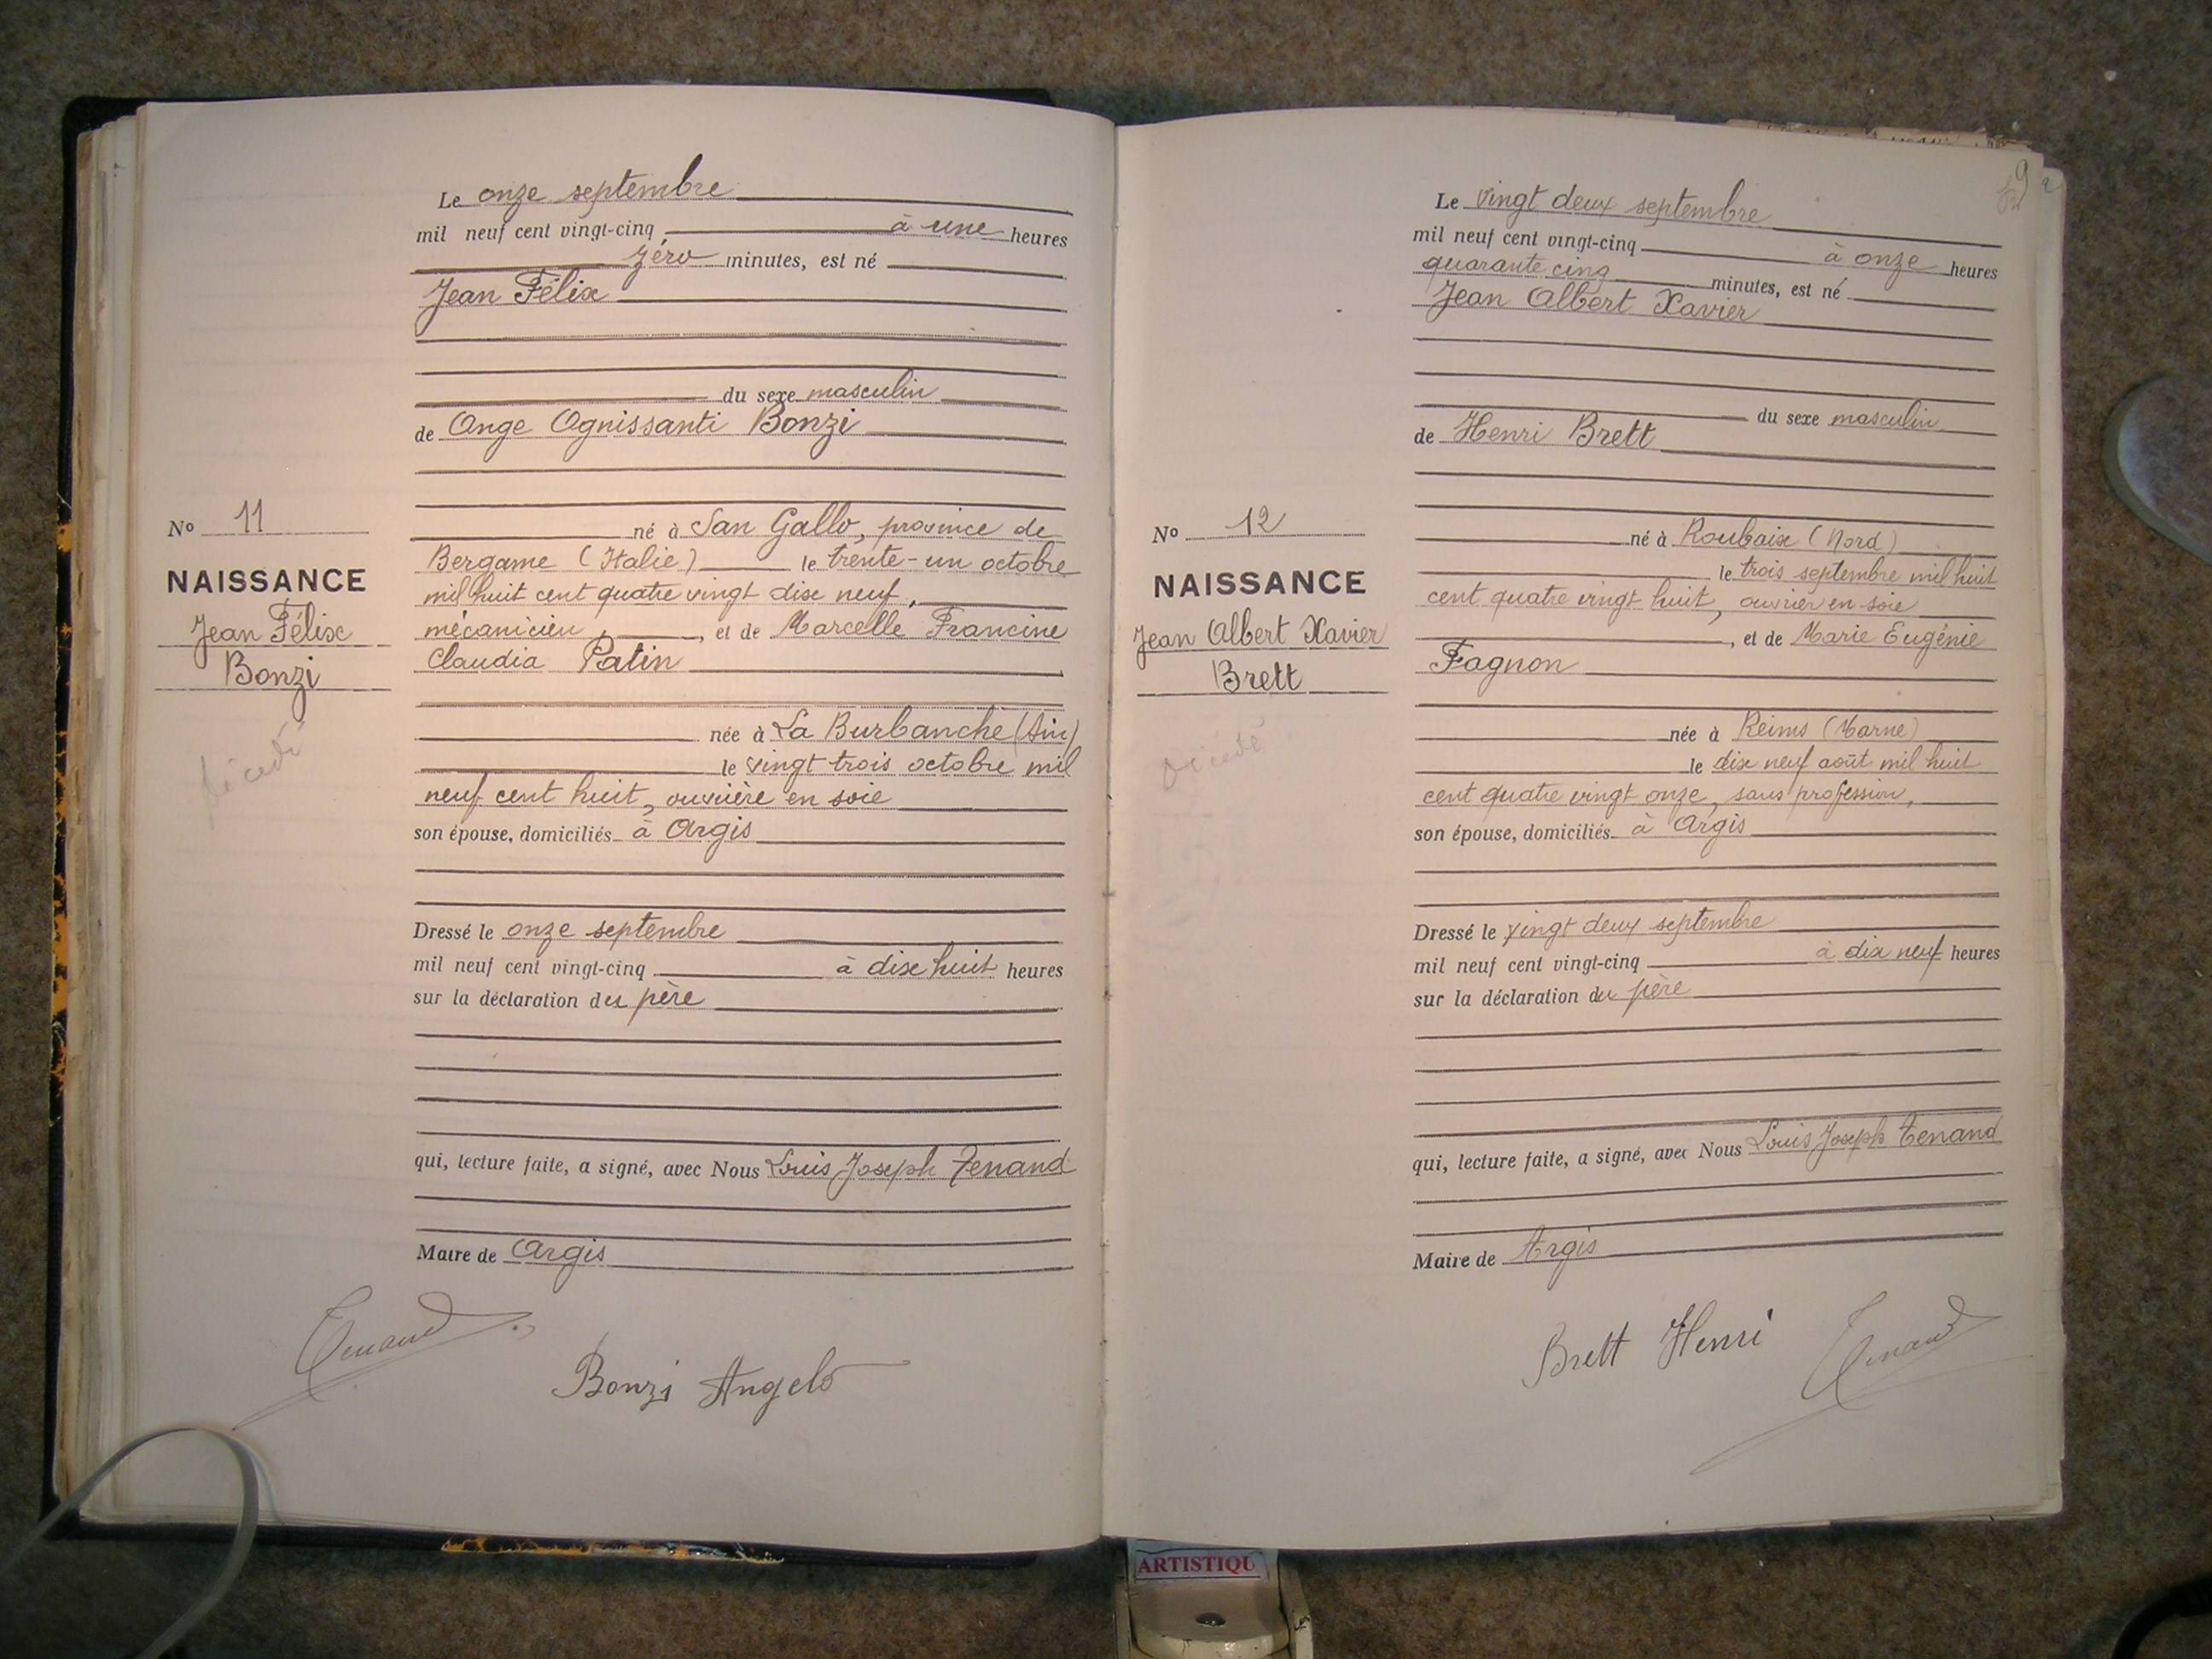 Le onze septembre
mil neuf cent vingt-cinq, à une heures
zéro minutes, est né
Jean Félix
du sexe masculin
de Ange Ognissanti Bonzi
né à San Gallo, province de
Bergame (Italie) le trente-un octobre
mil huit cent quatre vingt dix neuf,
mécanicien, et de Marcelle Francine
Claudia Patin
née à La Burbanche (Ain)
le vingt trois octobre mil
neuf cent huit, ouvrière en soie
son épouse, domiciliés à Argis
Dressé le onze septembre
mil neuf cent vingt-cinq à dix huit heures
sur la déclaration du père
qui, lecture faite, a signé, avec Nous Louis Joseph Tenand
Maire de Argis
Tenand
Bonzi Angelo
No 11
NAISSANCE
Jean Félix
Bonzi
décédé
Le vingt deux septembre
mil neuf cent vingt-cinq à onze heures
quarante cinq minutes, est né
Jean Albert Xavier
du sexe masculin
de Henri Brett
né à Roubaix (Nord)
le trois septembre mil huit
cent quatre vingt huit, ouvrier en soie
, et de Marie Eugénie
Fagnon
née à Reims (Marne)
le dix neuf août mil huit
cent quatre vingt onze, sans profession,
son épouse, domiciliés à Argis
Dressé le vingt deux septembre
mil neuf cent vingt-cinq à dix neuf heures
sur la déclaration du père
qui, lecture faite, a signé, avec Nous Louis Joseph Tenand
Maire de Argis
Brett Henri
Tenand
No 12
NAISSANCE
Jean Albert Xavier
Brett
Décédé
9
ARTISTIQU